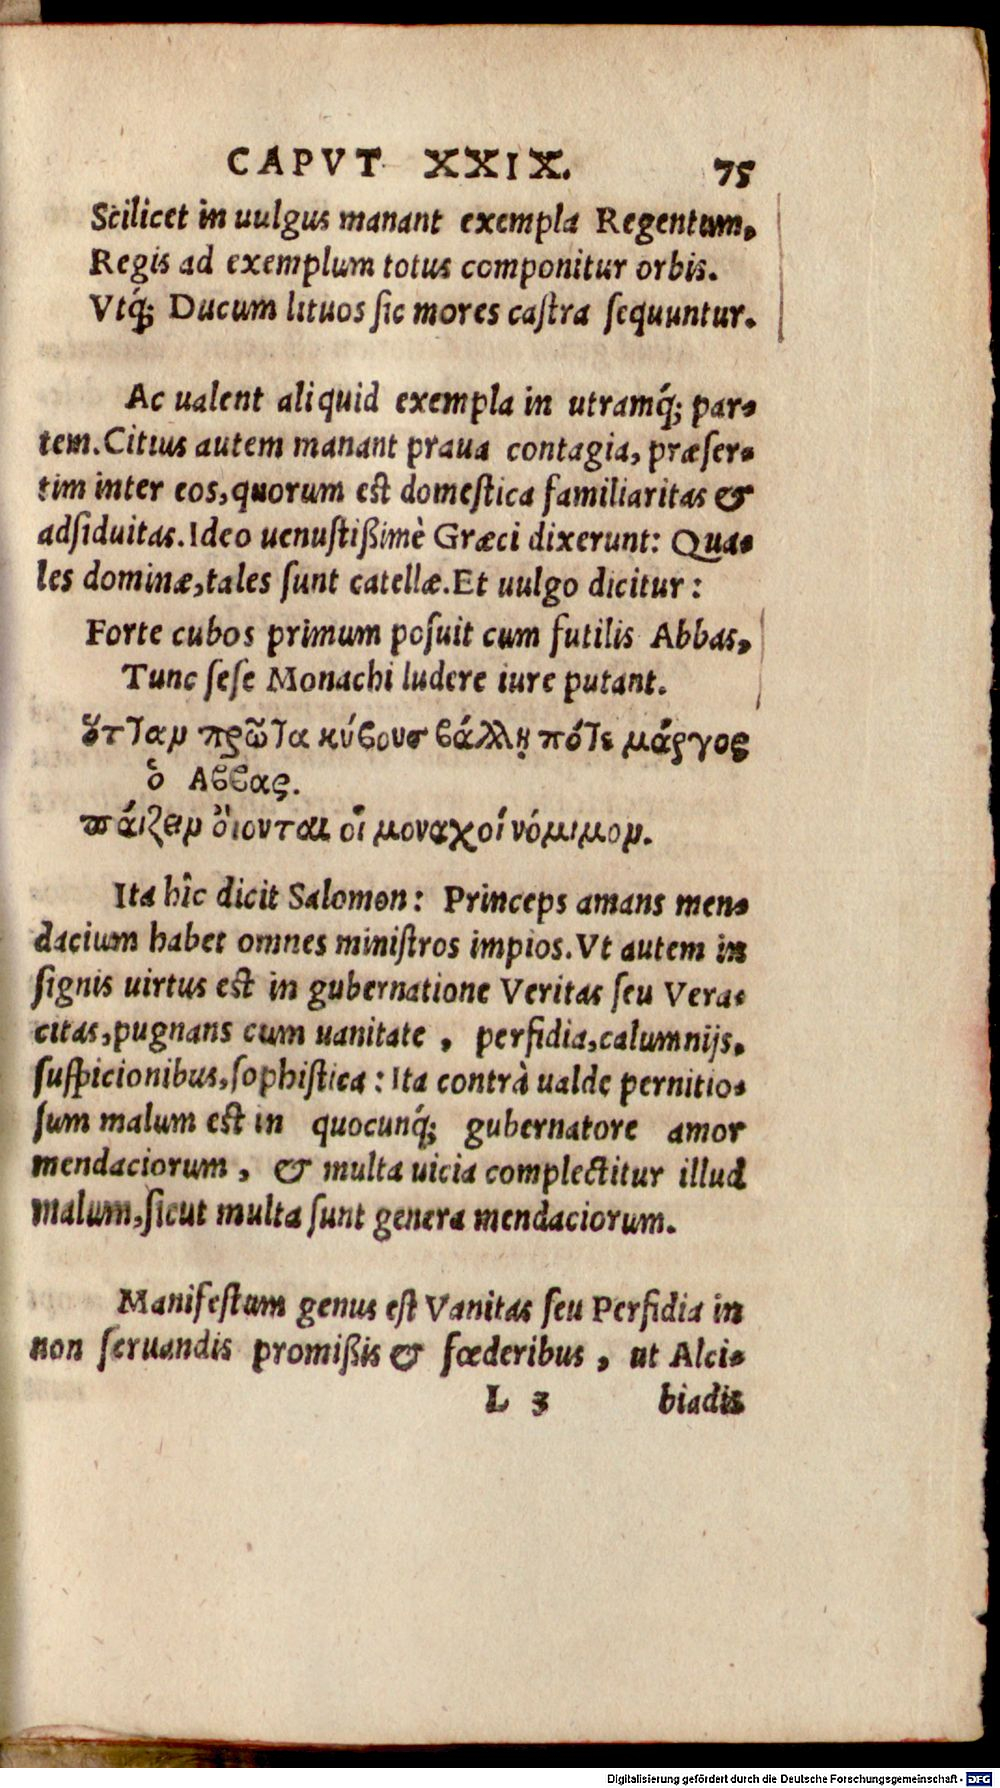 CAPVT XXIX. 75
Scilicet in uulgus manant exempla Regentum,
Regis ad exemplum totus componitur orbis.
Vtq́; Ducum lituos sic mores castra sequuntur.
Ac ualent aliquid exempla in utramq́; par-
tem. Citius autem manant praua contagia, præser-
tim inter eos, quorum est domestica familiaritas &
adsiduitas. Ideo uenustißimè Græci dixerunt: Qua-
les dominæ, tales sunt catellæ. Et uulgo dicitur:
Forte cubos primum posuit cum futilis Abbas,
Tunc sese Monachi ludere iure putant.
ὅτταν πρῶτα κύβους βάλλῃ πότε μάργος
ὁ Αββας.
πάιζειν ὄιονται οἱ μοναχοί νόμιμον.
Ita hîc dicit Salomon: Princeps amans men-
dacium habet omnes ministros impios. Vt autem in
signis uirtus est in gubernatione Veritas seu Vera-
citas, pugnans cum uanitate, perfidia, calumnijs,
suspicionibus, sophistica: Ita contrà ualde pernitio-
sum malum est in quocunq́; gubernatore amor
mendaciorum, & multa uicia complectitur illud
malum, sicut multa sunt genera mendaciorum.
Manifestum genus est Vanitas seu Perfidia in
non seruandis promißis & fœderibus, ut Alci-
L 3 biadis
Digitalisierung gefördert durch die Deutsche Forschungsgemeinschaft - DFG